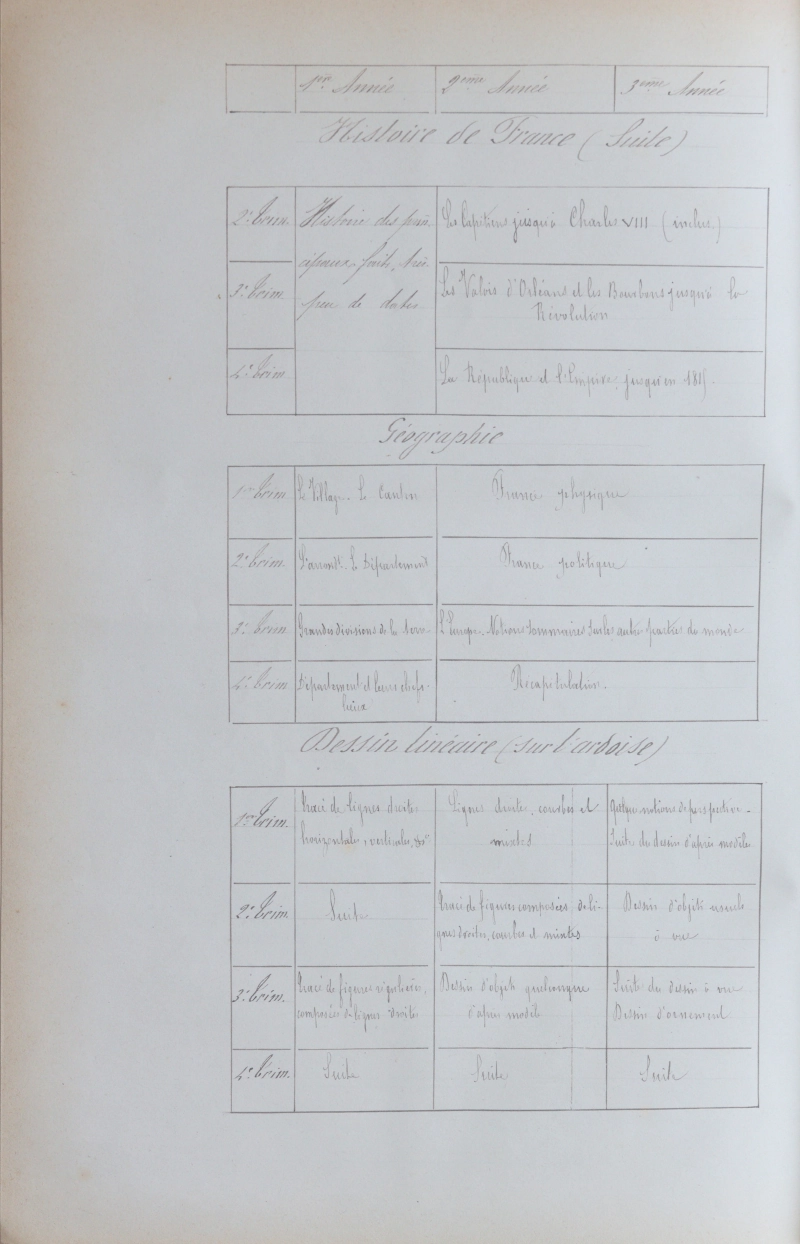 1ère Année 2ème Année 3ème Année
Histoire de France (Suite)
2e Trim. Histoire des prin- Les Capétiens jusqu'à Charles VIII (inclus.)
cipaux faits, très
3e Trim. peu de dates Les Valois d'Orléans et les Bourbons jusqu'à la
Révolution
4e Trim. La République et l'Empire, jusqu'en 1815.
Géographie
1er Trim. Le Village - Le Canton France physique
2e Trim. L'arrondt. Le Département France politique
3e Trim. Grandes divisions de la terre L'Europe - Notions sommaires sur les autres parties du monde
4e Trim. Département et leurs chefs- Récapitulation.
lieux
Dessin linéaire (sur l'ardoise)
1er Trim. Tracé de lignes droites Lignes droites, courbes et Quelques notions de perspective -
horizontales, verticales, &a mixtes Suite du dessin d'après modèle
2e Trim. Suite Tracé de figures composées de li- Dessin d'objets usuels
gnes droites, courbes et mixtes à vue
3e Trim. Tracé de figures régulières, Dessin d'objets quelconques Suite du dessin à vue
composées de lignes droites d'après modèle Dessin d'ornement
4e Trim. Suite Suite Suite